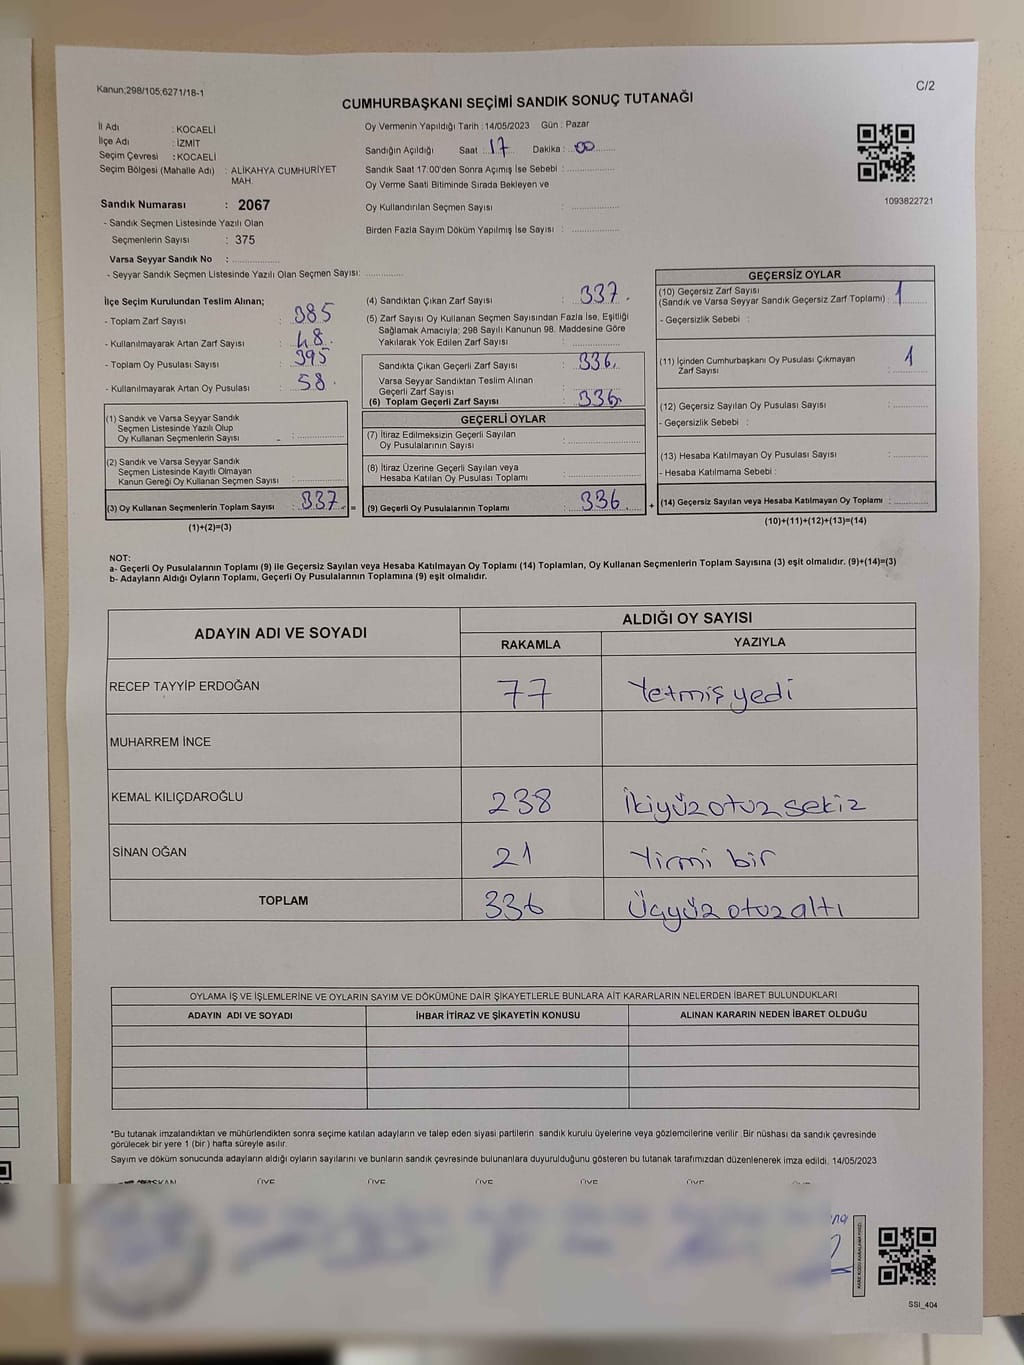 Kanun;298/105,6271/18-1
C/2
CUMHURBAŞKANI SEÇİMİ SANDIK SONUÇ TUTANAĞI
İl Adı : KOCAELİ
İlçe Adı : İZMİT
Seçim Çevresi : KOCAELİ
Seçim Bölgesi (Mahalle Adı) : ALİKAHYA CUMHURİYET
MAH.
Sandık Numarası : 2067
- Sandık Seçmen Listesinde Yazılı Olan
Seçmenlerin Sayısı : 375
Varsa Seyyar Sandık No : ..............
- Seyyar Sandık Seçmen Listesinde Yazılı Olan Seçmen Sayısı: ............
Oy Vermenin Yapıldığı Tarih : 14/05/2023 Gün : Pazar
Sandığın Açıldığı Saat : 17 Dakika : 00
Sandık Saat 17:00'den Sonra Açımış İse Sebebi : ..............
Oy Verme Saati Bitiminde Sırada Bekleyen ve
Oy Kullandırılan Seçmen Sayısı : ..............
Birden Fazla Sayım Döküm Yapılmış İse Sayısı : ..............
1093822721
İlçe Seçim Kurulundan Teslim Alınan;
- Toplam Zarf Sayısı : 385
- Kullanılmayarak Artan Zarf Sayısı : 48
- Toplam Oy Pusulası Sayısı : 395
- Kullanılmayarak Artan Oy Pusulası : 58
(1) Sandık ve Varsa Seyyar Sandık
Seçmen Listesinde Yazılı Olup
Oy Kullanan Seçmenlerin Sayısı : ..............
(2) Sandık ve Varsa Seyyar Sandık
Seçmen Listesinde Kayıtlı Olmayan
Kanun Gereği Oy Kullanan Seçmen Sayısı : ..............
(3) Oy Kullanan Seçmenlerin Toplam Sayısı : 337 =
(1)+(2)=(3)
(4) Sandıktan Çıkan Zarf Sayısı : 337
(5) Zarf Sayısı Oy Kullanan Seçmen Sayısından Fazla İse, Eşitliği
Sağlamak Amacıyla; 298 Sayılı Kanunun 98. Maddesine Göre
Yakılarak Yok Edilen Zarf Sayısı : ..............
Sandıkta Çıkan Geçerli Zarf Sayısı : 336
Varsa Seyyar Sandıktan Teslim Alınan
Geçerli Zarf Sayısı : ..............
(6) Toplam Geçerli Zarf Sayısı : 336
GEÇERLİ OYLAR
(7) İtiraz Edilmeksizin Geçerli Sayılan
Oy Pusulalarının Sayısı : ..............
(8) İtiraz Üzerine Geçerli Sayılan veya
Hesaba Katılan Oy Pusulası Toplamı : ..............
(9) Geçerli Oy Pusulalarının Toplamı : 336 +
GEÇERSİZ OYLAR
(10) Geçersiz Zarf Sayısı
(Sandık ve Varsa Seyyar Sandık Geçersiz Zarf Toplamı) : 1
- Geçersizlik Sebebi :
(11) İçinden Cumhurbaşkanı Oy Pusulası Çıkmayan
Zarf Sayısı : 1
(12) Geçersiz Sayılan Oy Pusulası Sayısı : ..............
- Geçersizlik Sebebi :
(13) Hesaba Katılmayan Oy Pusulası Sayısı : ..............
- Hesaba Katılmama Sebebi :
(14) Geçersiz Sayılan veya Hesaba Katılmayan Oy Toplamı : ..............
(10)+(11)+(12)+(13)=(14)
NOT:
a- Geçerli Oy Pusulalarının Toplamı (9) ile Geçersiz Sayılan veya Hesaba Katılmayan Oy Toplamı (14) Toplamları, Oy Kullanan Seçmenlerin Toplam Sayısına (3) eşit olmalıdır. (9)+(14)=(3)
b- Adayların Aldığı Oyların Toplamı, Geçerli Oy Pusulalarının Toplamına (9) eşit olmalıdır.
ADAYIN ADI VE SOYADI
ALDIĞI OY SAYISI
RAKAMLA YAZIYLA
RECEP TAYYİP ERDOĞAN 77 Yetmiş yedi
MUHARREM İNCE
KEMAL KILIÇDAROĞLU 238 İkiyüz otuz sekiz
SİNAN OĞAN 21 Yirmi bir
TOPLAM 336 Üçyüz otuz altı
OYLAMA İŞ VE İŞLEMLERİNE VE OYLARIN SAYIM VE DÖKÜMÜNE DAİR ŞİKAYETLERLE BUNLARA AİT KARARLARIN NELERDEN İBARET BULUNDUKLARI
ADAYIN ADI VE SOYADI İHBAR İTİRAZ VE ŞİKAYETİN KONUSU ALINAN KARARIN NEDEN İBARET OLDUĞU
*Bu tutanak imzalandıktan ve mühürlendikten sonra seçime katılan adayların ve talep eden siyasi partilerin sandık kurulu üyelerine veya gözlemcilerine verilir. Bir nüshası da sandık çevresinde
görülecek bir yere 1 (bir) hafta süreyle asılır.
Sayım ve döküm sonucunda adayların aldığı oyların sayılarını ve bunların sandık çevresinde bulunanlara duyurulduğunu gösteren bu tutanak tarafımızdan düzenlenerek imza edildi. 14/05/2023
ÜYE ÜYE ÜYE ÜYE ÜYE
SSI_404